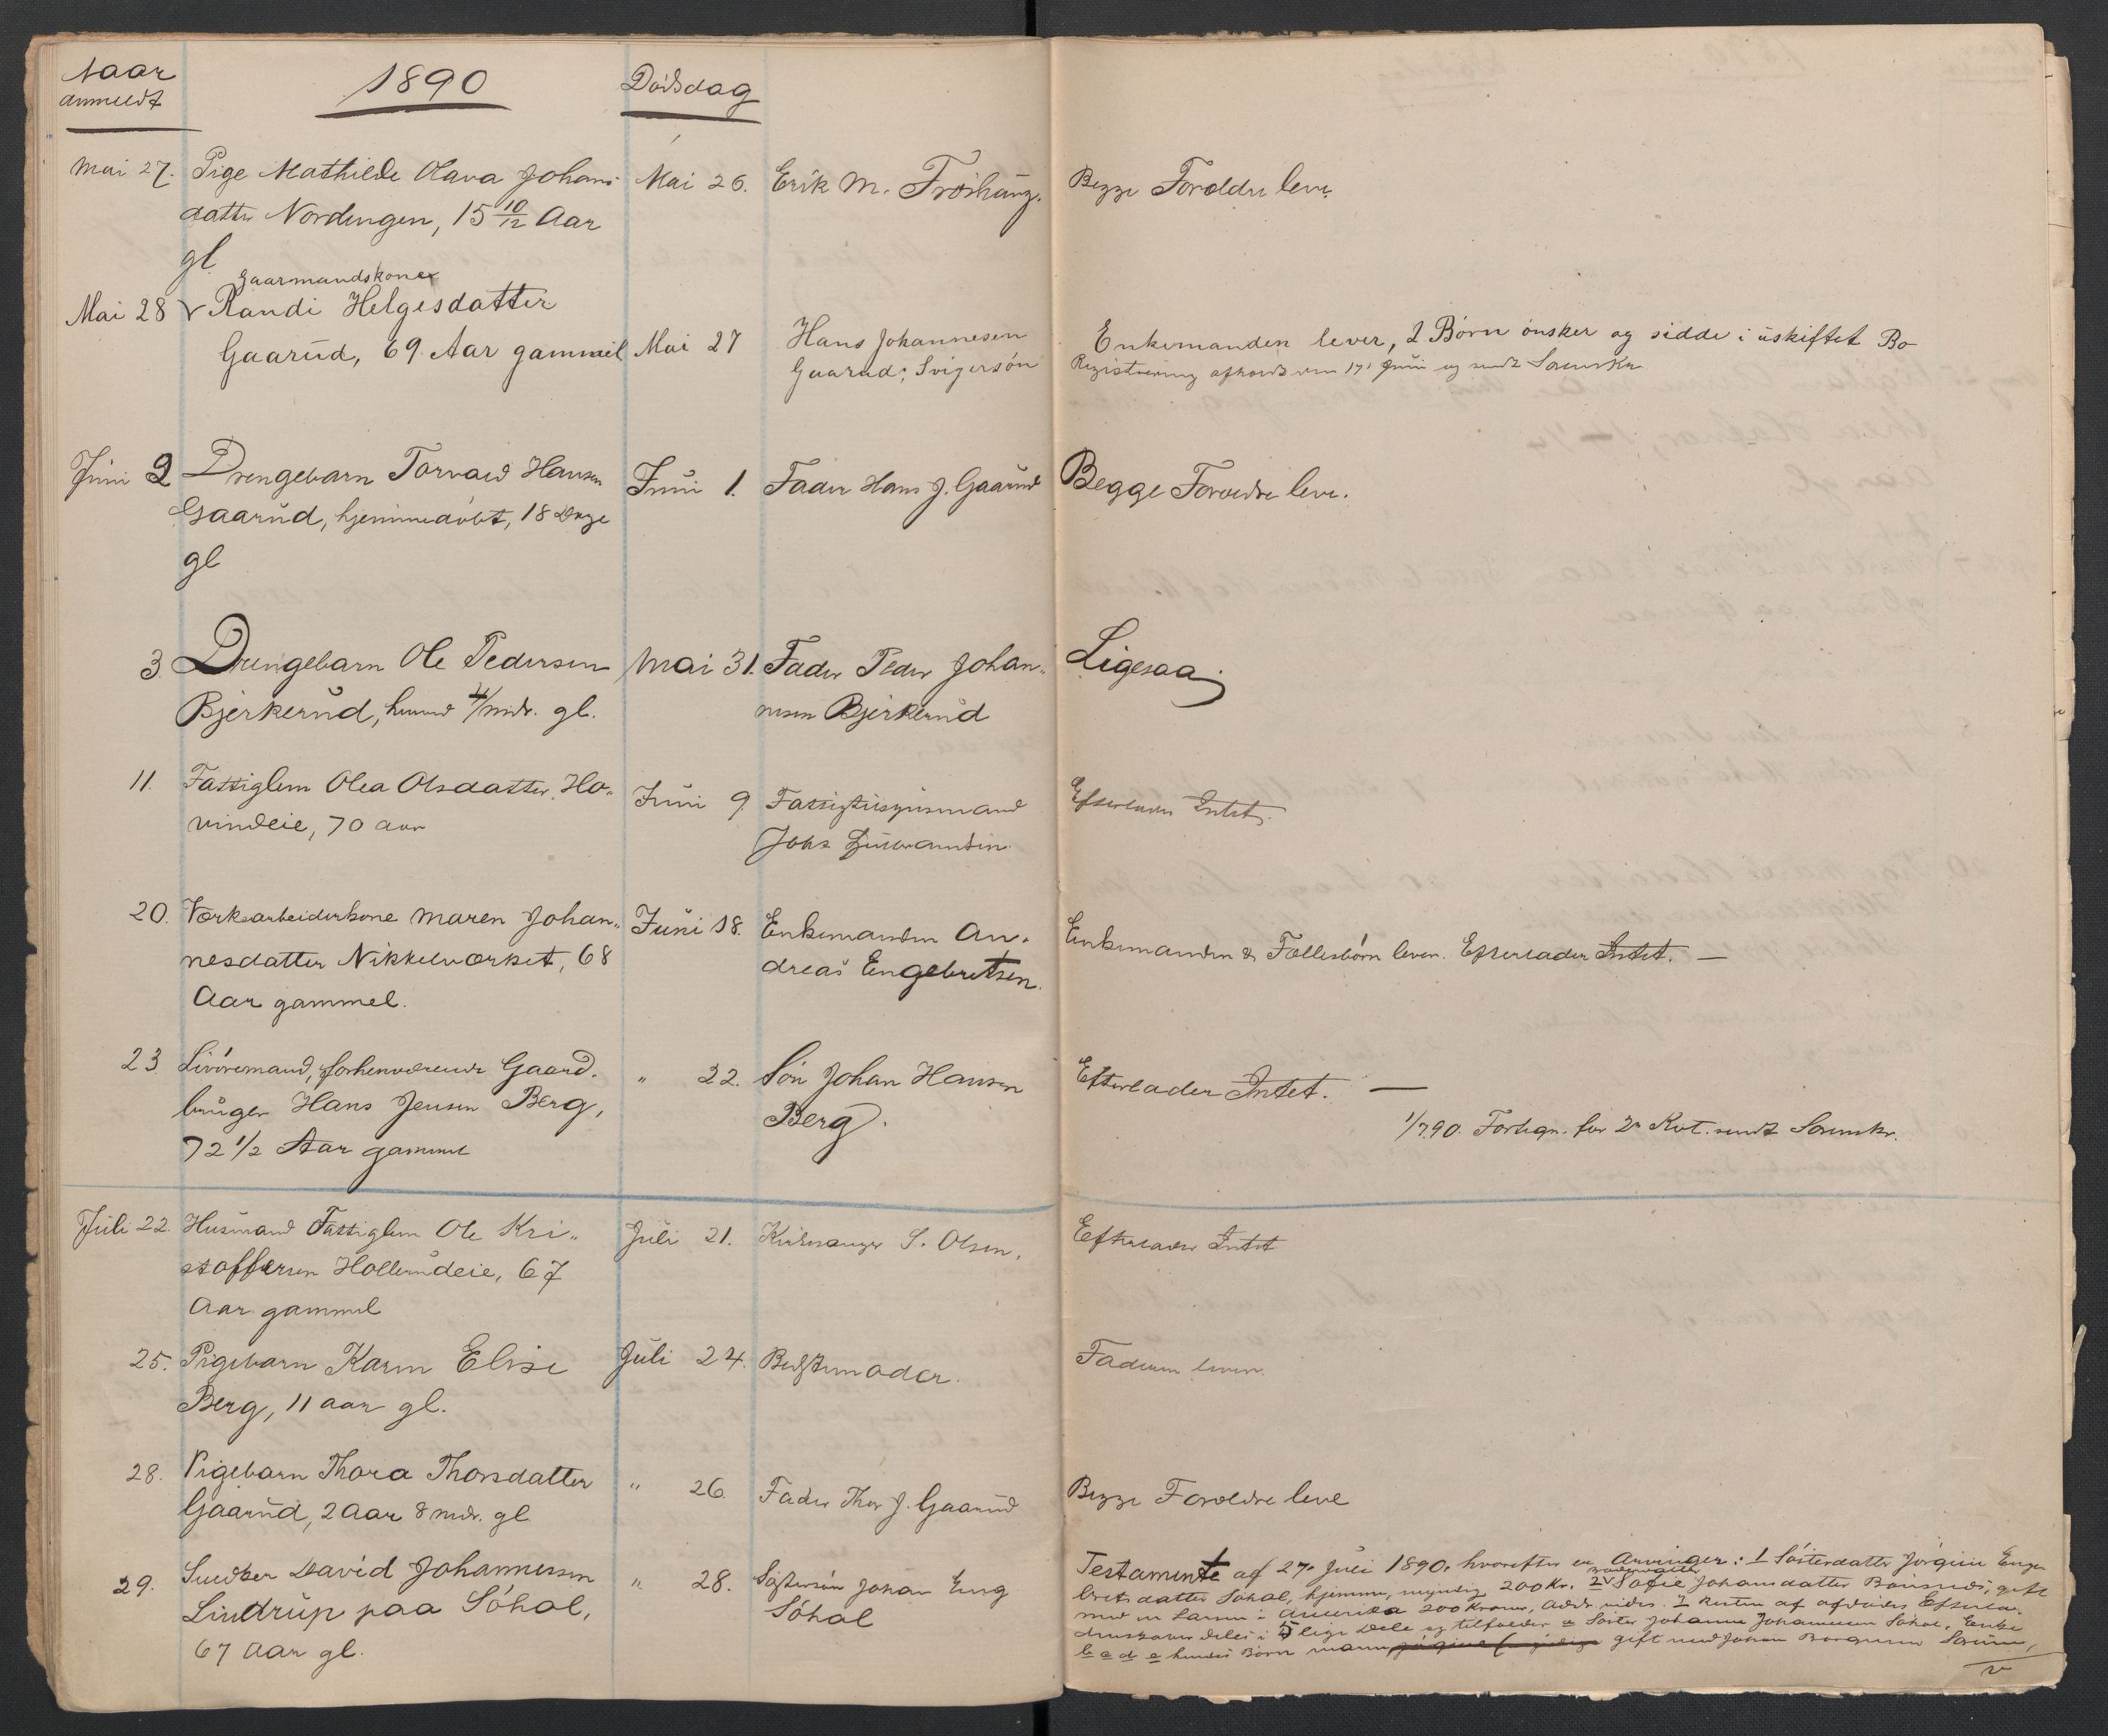 Naar
anmeldt
1890
Dødsdag
Mai 27. Pige Mathilde Olava Johans- Mai 26. Erik M. Frøshaug. Begge Forældre leve.
datter Nordengen, 15 10/12 Aar
gl.
Gaarmandskone
Mai 28 Randi Helgesdatter
Gaarud, 69 Aar gammel Mai 27 Hans Johannesen Enkemanden lever, 2 Børn ønsker og sidde i uskiftet Bo
Gaarud; Svigersøn Registrering afholdt den 17 Juni og sendt Sorenskr.
Juni 2 Drengebarn Torvald Hansen Juni 1. Fader Hans J. Gaarud Begge Forældre leve.
Gaarud, hjemmedøbt, 18 Dage
gl
3. Drengebarn Ole Pedersen Mai 31. Fader Peder Johan- Ligesaa
Bjerkerud, 4 mdr. gl. nesen Bjerkerud
11. Fattiglem Olea Olsdatter Ho- Juni 9. Fattigtilsynsmand Efterlader Intet.
vindeie, 70 aar Johs
20. Værksarbeiderkone Maren Johan- Juni 18. Enkemanden An- Enkemanden & Fællesbørn lever. Efterlader Intet. —
nesdatter Nikkelværket, 68 dreas Engebretsen.
Aar gammel.
23. Livøremand, forhenværende Gaard- " 22. Søn Johan Hansen Efterlader Intet. —
bruger Hans Jensen Berg, Berg. 1/7 90. Fortegn. for 2n Kvt. sendt Sorenskr.
72 1/2 Aar gammel
Juli 22. Husmand Fattiglem Ole Kri- Juli 21. Kirkesanger S. Olsen. Efterlader Intet
stoffersen Hollerudeie, 67
Aar gammel
25. Pigebarn Karen Elise Juli 24. Bedstemoder. Faderen lever.
Berg, 11 aar gl.
28. Pigebarn Thora Thorsdatter " 26. Fader Thor J. Gaarud Begge Forældre leve
Gaarud, 2 Aar 8 mdr. gl.
29. Snedker David Johannessen " 28. Søstersøn Johan Eng
Lindrup paa Søhol, Søhol
67 Aar gl.
Testamente af 27. Juli 1890, hvorefter er Arvinger: 1 Søsterdatter Jørgine Enge-
bretsdatter Søhol, hjemme, myndig 200 Kr. 2 Sofie Johansdatter gift
med en Larsen i Amerika 200 Kroner, I Resten af afdødes Efterla-
denskaber deles i 5 lige Dele og tilfalder a Søster Johanne Johannesen Søhol, Enke
b c d e hendes Børn gift med Johan
v